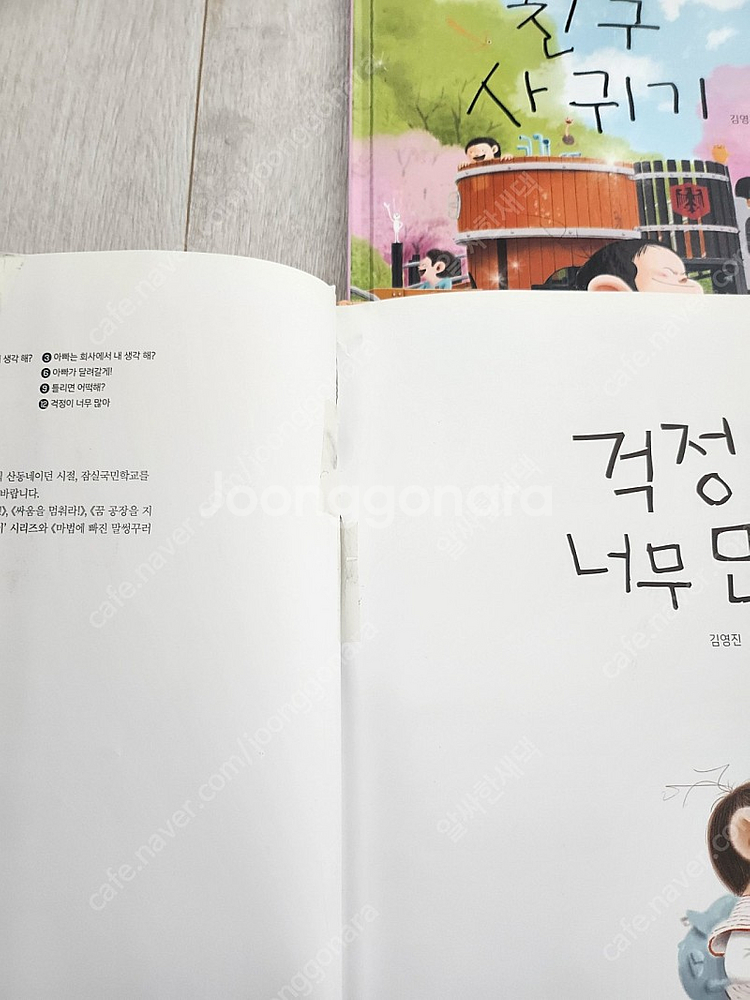 친구
사귀기
김영
생각 해? ❸ 아빠는 회사에서 내 생각 해?
❻ 아빠가 달려갈게!
❾ 틀리면 어떡해?
⓬ 걱정이 너무 많아
산동네이던 시절, 잠실국민학교를
바랍니다.
《싸움을 멈춰라!》, 《꿈 공장을 지
시리즈와 《마법에 빠진 말썽꾸러
걱정
너무
김영진
Joonggonara
cafe.naver.com/joonggonara
알싸한새댁